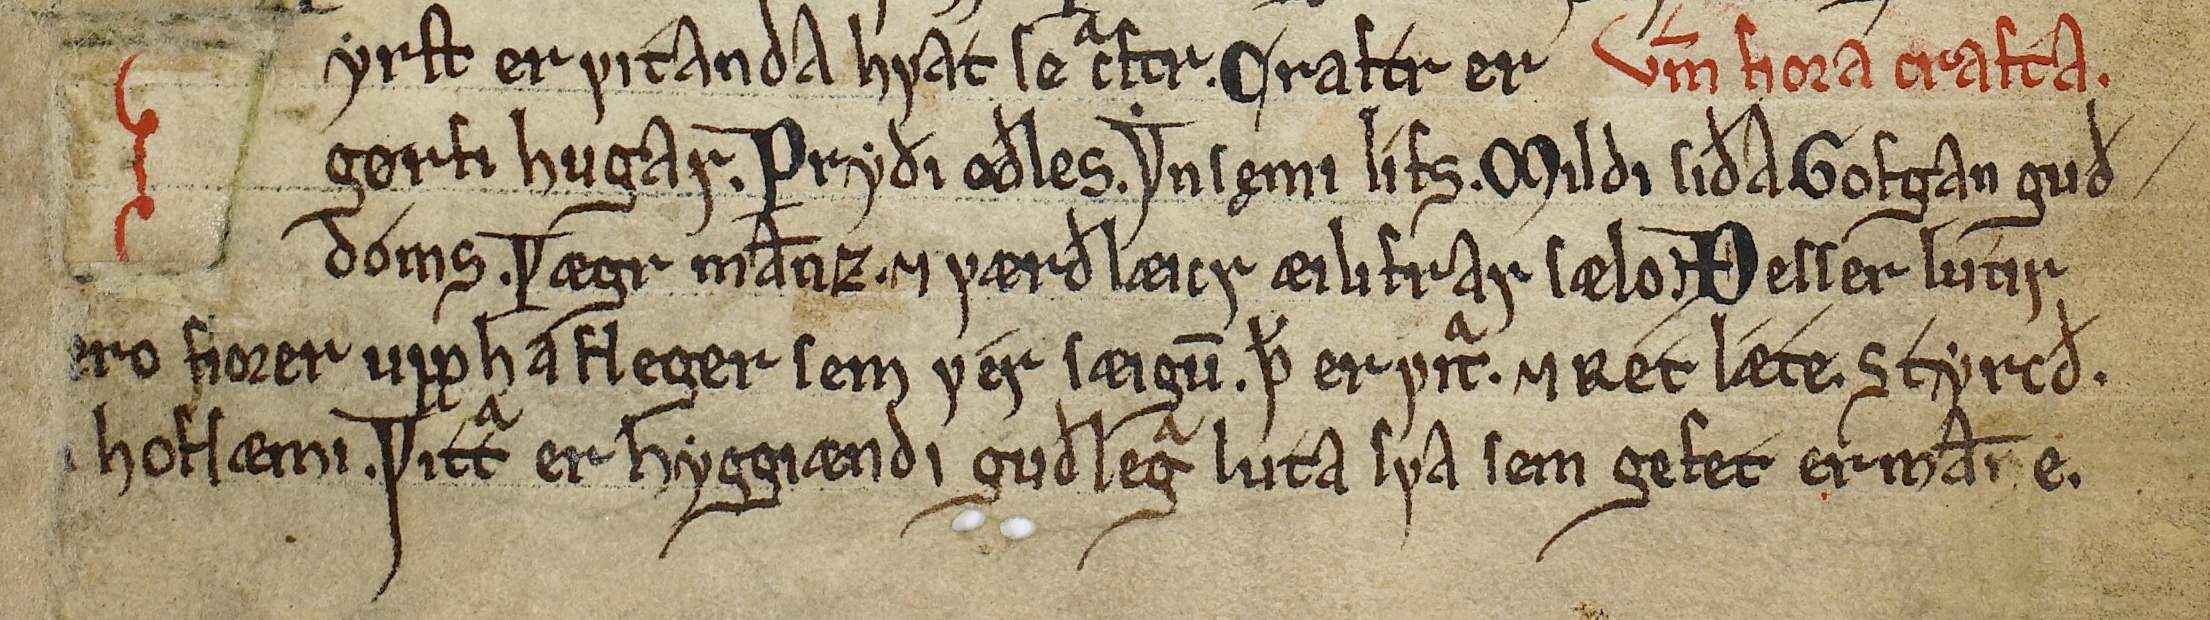 ẏrſt er ƿitanda hƿat ſe cᵃftr. Craftr er Vm̅ fiora crafta.
gørfi hugaꝛ. Prẏði oðles. Ẏnſęmi lifs. Mildi ſiða Gofgan guð
dóms. Ƿægr man̅z. ⁊ ƿærðlæicꝛ æilifraꝛ ſælo. Þeſſer lutiꝛ
ero fiorer upphafleger ſem ƿéꝛ ſæigu̅. þ̅ er ƿitᵃ. ⁊ ʀét læte. ſtẏrcð.
hoffæmi. Ƿittᵃ er hẏggiændi guðlegᵃ luta ſƿa ſem gefet er man̅e.